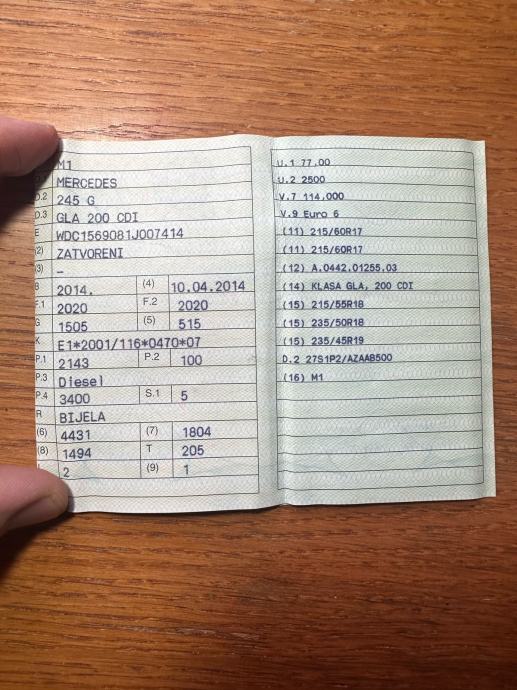 M1
MERCEDES
D.2 245 G
D.3 GLA 200 CDI
E WDC1569081J007414
(2) ZATVORENI
(3) –
B 2014. (4) 10.04.2014
F.1 2020 F.2 2020
G 1505 (5) 515
K E1*2001/116*0470*07
P.1 2143 P.2 100
P.3 Diesel
P.4 3400 S.1 5
R BIJELA
(6) 4431 (7) 1804
(8) 1494 T 205
L 2 (9) 1
U.1 77.00
U.2 2500
V.7 114.000
V.9 Euro 6
(11) 215/60R17
(11) 215/60R17
(12) A.0442.01255.03
(14) KLASA GLA, 200 CDI
(15) 215/55R18
(15) 235/50R18
(15) 235/45R19
D.2 27S1P2/AZAAB500
(16) M1